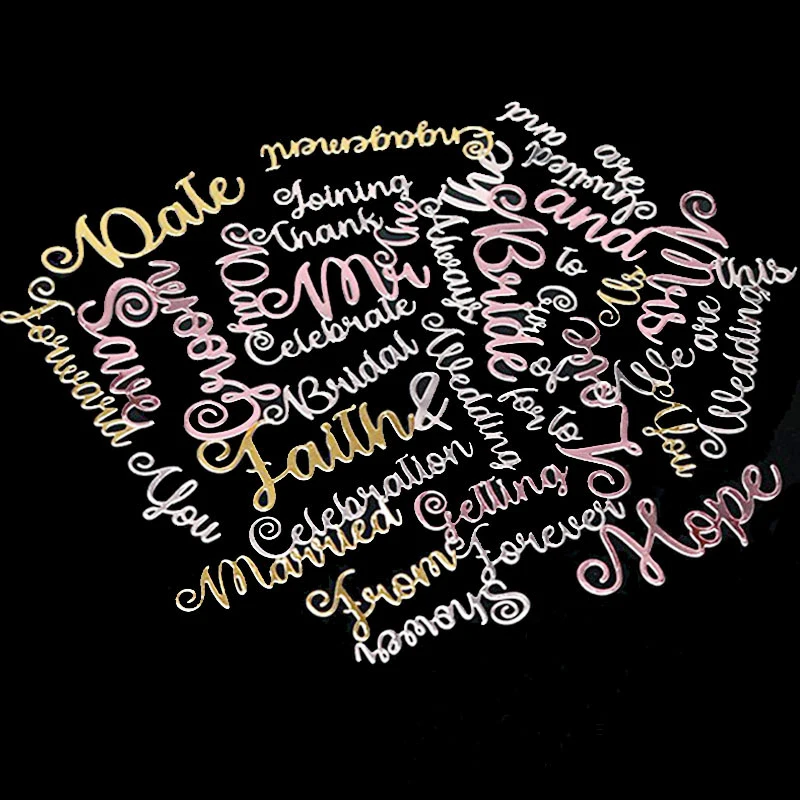 Engagement
and
Invited
are
Date
Joining
Thank
and
Mrs
This
Always
Bride
to
Mr
Groom
Save
Forward
Celebrate
Ms
We are
Wedding
Bridal
Wedding
for
to
You
Love
Faith
&
You
Celebration
Getting
Forever
Hope
Married
From
Shower